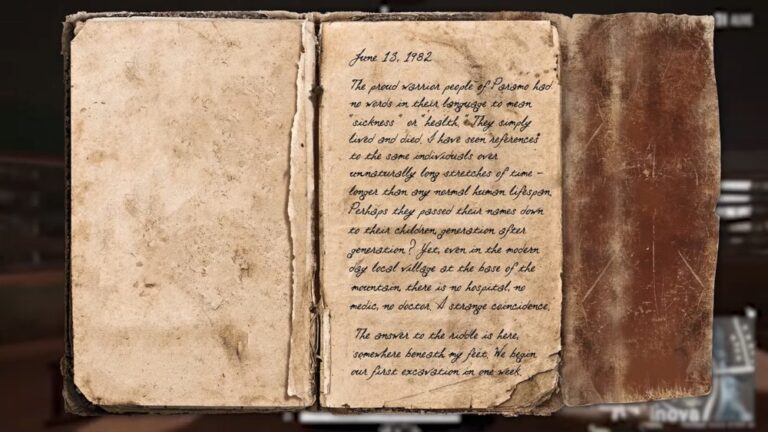 June 13, 1982
The proud warrior people of Paramo had
no words in their language to mean
"sickness" or "health." They simply
lived and died. I have seen references
to the same individuals over
unnaturally long stretches of time -
longer than any normal human lifespan.
Perhaps they passed their names down
to their children, generation after
generation? Yet, even in the modern
day local village at the base of the
mountain, there is no hospital, no
medic, no doctor. A strange coincidence.
The answer to the riddle is here,
somewhere beneath my feet. We begin
our first excavation in one week.
inova